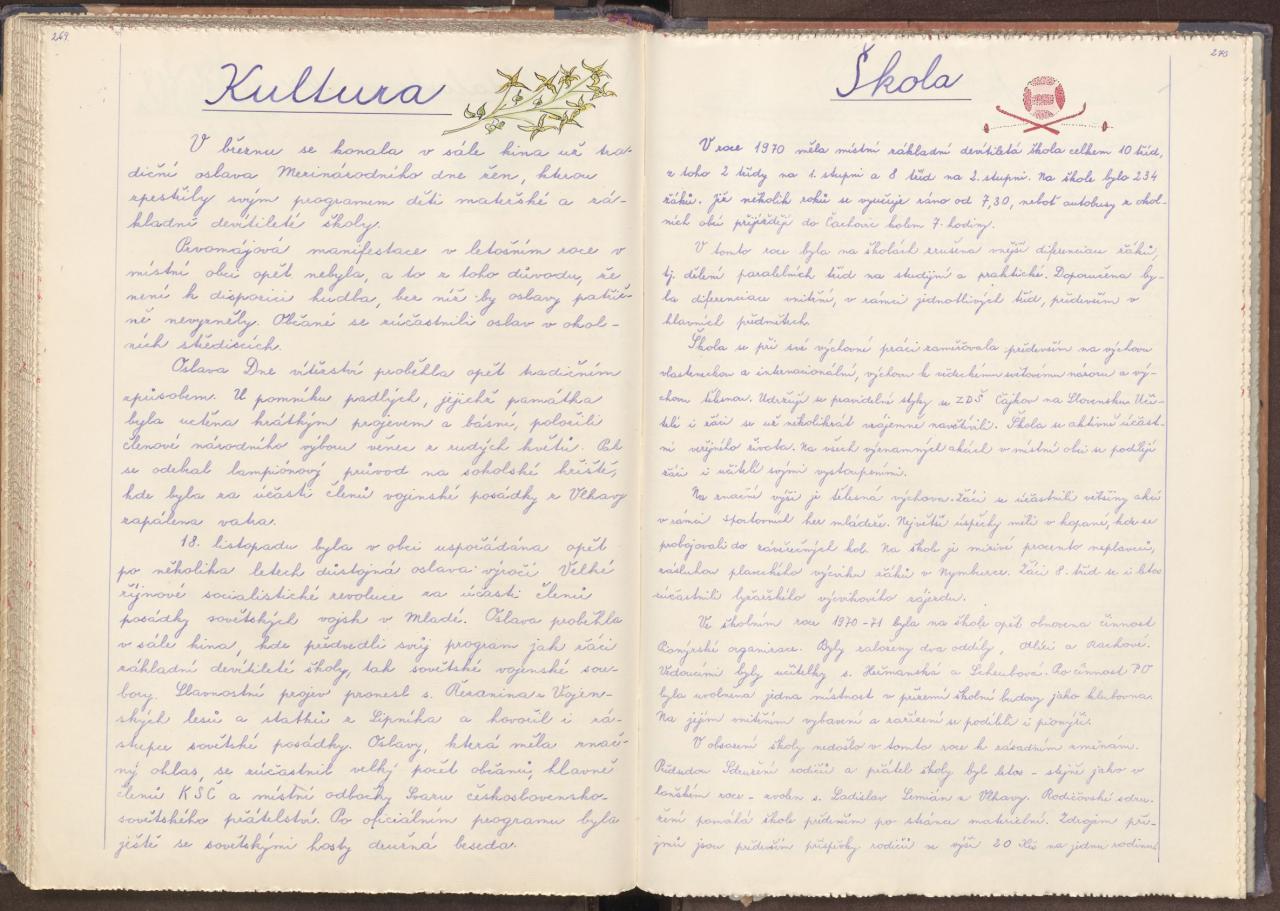 269
Kultura
V březnu se konala v sále kina už tra-
diční oslava Mezinárodního dne žen, kterou
zpestřily svým programem děti mateřské a zá-
kladní devítileté školy.
Prvomájová manifestace v letošním roce v
místní obci opět nebyla, a to z toho důvodu, že
není k disposici hudba, bez níž by oslavy patřič-
ně nevyzněly. Občané se zúčastnili oslav v okol-
ních střediscích.
Oslava Dne vítězství proběhla opět tradičním
způsobem. U pomníku padlých, jejichž památka
byla uctěna krátkým projevem a básní, položili
členové národního výboru věnec z rudých květů. Pak
se odebral lampiónový průvod na sokolské hřiště,
kde byla za účasti členů vojenské posádky z Vlkavy
zapálena vatra.
18. listopadu byla v obci uspořádána opět
po několika letech důstojná oslava výročí Velké
říjnové socialistické revoluce za účasti členů
posádky sovětských vojsk v Mladé. Oslava proběhla
v sále kina, kde předvedli svůj program jak žáci
základní devítileté školy, tak sovětské vojenské sou-
bory. Slavnostní projev pronesl s. Řezanina z Vojen-
ských lesů a statků z Lipníka a hovořil i zá-
stupce sovětské posádky. Oslavy, která měla znač-
ný ohlas, se zúčastnil velký počet občanů, hlavně
členů KSČ a místní odbočky Svazu československo-
sovětského přátelství. Po oficiálním programu byla
ještě se sovětskými hosty družná beseda.
270
Škola
V roce 1970 měla místní základní devítiletá škola celkem 10 tříd,
z toho 2 třídy na 1. stupni a 8 tříd na 2. stupni. Na škole bylo 234
žáků. Již několik roků se vyučuje ráno od 7,30, neboť autobusy z okol-
ních obcí přijíždějí do Čachovic kolem 7. hodiny.
V tomto roce byla na školách zrušena vnější diferenciace žáků,
tj. dělení paralelních tříd na studijní a praktické. Doporučena by-
la diferenciace vnitřní, v rámci jednotlivých tříd, především v
hlavních předmětech.
Škola se při své výchovné práci zaměřovala především na výchovu
vlasteneckou a internacionální, výchovu k vědeckému světovému názoru a vý-
chovu tělesnou. Udržují se pravidelné styky se ZDŠ Čajkov na Slovensku. Uči-
telé i žáci se už několikrát vzájemně navštívili. Škola se aktivně účast-
ní veřejného života. Na všech významných akcích v místní obci se podílejí
žáci i učitelé svými vystoupeními.
Na značné výši je tělesná výchova. Žáci se účastnili většiny akcí
v rámci sportovních her mládeže. Největší úspěchy měli v kopané, kde se
probojovali do závěrečných kol. Na škole je mizivé procento neplavců,
zásluhou plaveckého výcviku žáků v Nymburce. Žáci 8. tříd se i letos
zúčastnili lyžařského výcvikového zájezdu.
Ve školním roce 1970-71 byla na škole opět obnovena činnost
Pionýrské organizace. Byly založeny dva oddíly, Vlčci a Rackové.
Vedoucími byly učitelky s. Heřmanská a Scheubová. Pro činnost PO
byla uvolněna jedna místnost v přízemí školní budovy jako klubovna.
Na jejím vnitřním vybavení a zařízení se podíleli i pionýři.
V obsazení školy nedošlo v tomto roce k zásadním změnám.
Předsedou Sdružení rodičů a přátel školy byl letos - stejně jako v
loňském roce - zvolen s. Ladislav Lemián z Vlkavy. Rodičovské sdru-
žení pomáhá škole především po stránce materiální. Zdrojem pří-
jmů jsou především příspěvky rodičů ve výši 20 Kčs na jednu rodinu